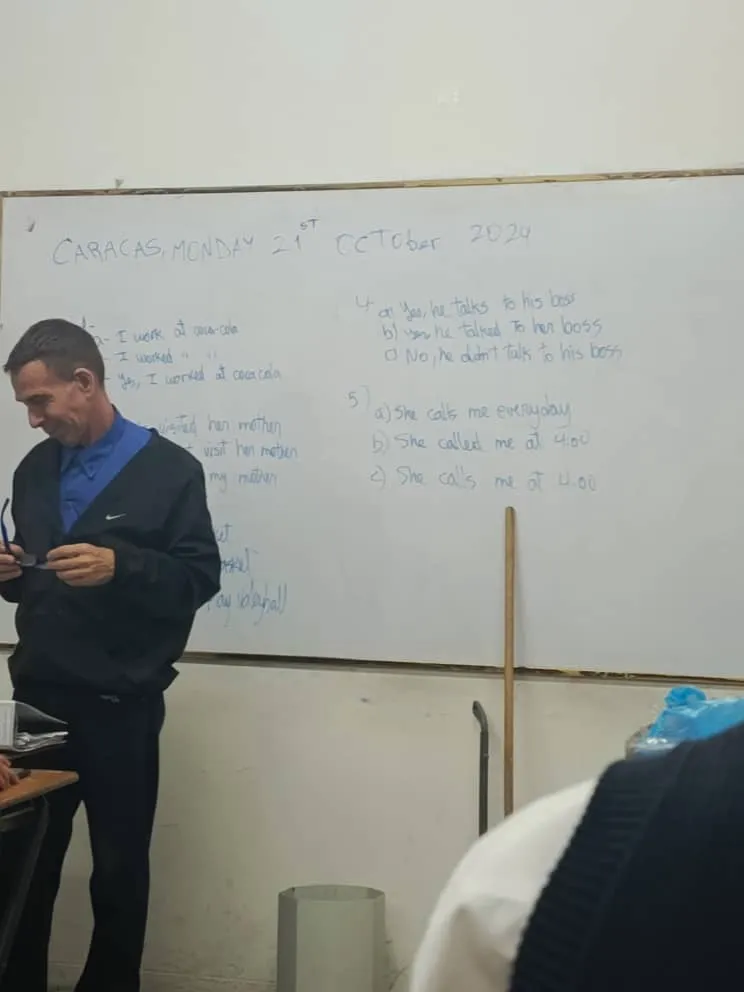 CARACAS, MONDAY 21ST OCTober 2024
- I work at coca-cola
- I worked " "
- Yes, I worked at coca cola
visited her mother
visit her mother
my mother
voleyball
4 a) Yes, he talks to his boss
b) Yes he talked To her boss
c) No, he didn't talk to his boss
5)
a) She calls me everyday
b) She called me at 4:00
c) She calls me at 4:00